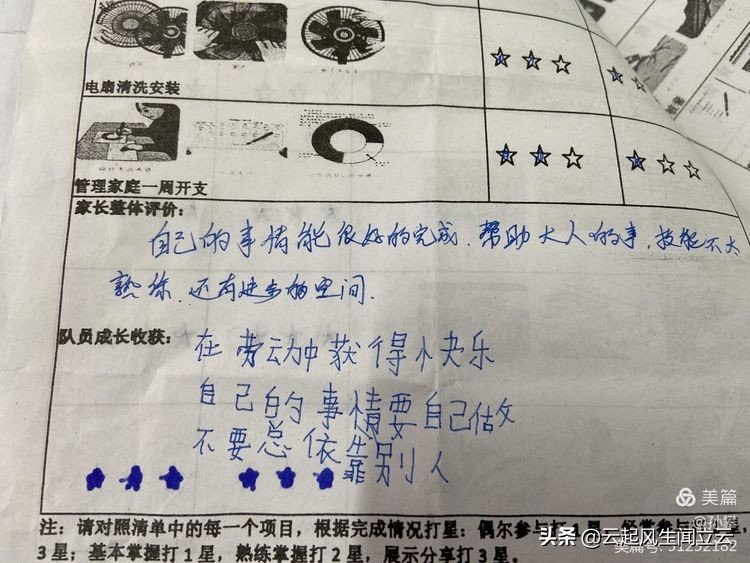 电扇清洗安装
管理家庭一周开支
家长整体评价:
自己的事情能很好的完成.帮助大人的事,技能不太
熟练.还有进步的空间.
队员成长收获:
在劳动中获得快乐
自己的事情要自己做
不要总依靠别人
注:请对照清单中的每一个项目,根据完成情况打星:偶尔参与打1星,经常参与打2星,
3星;基本掌握打1星,熟练掌握打2星,展示分享打3星。
美篇
@孙攀
头条 @云起风生闻立云
美篇号:31252182